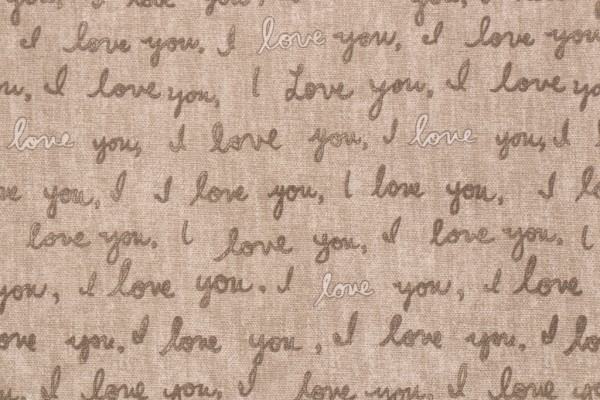 you, I love you, you, I love
I love you. I love you, I love you
I love you, I Love you, I love you
love you, I love you, I love you, I
you, I I love you, I love you, I
love you. I love you, I love you. I
you, I love you. I love you, I love
you, I love you, I love you, I
I love you, I love you, I love you